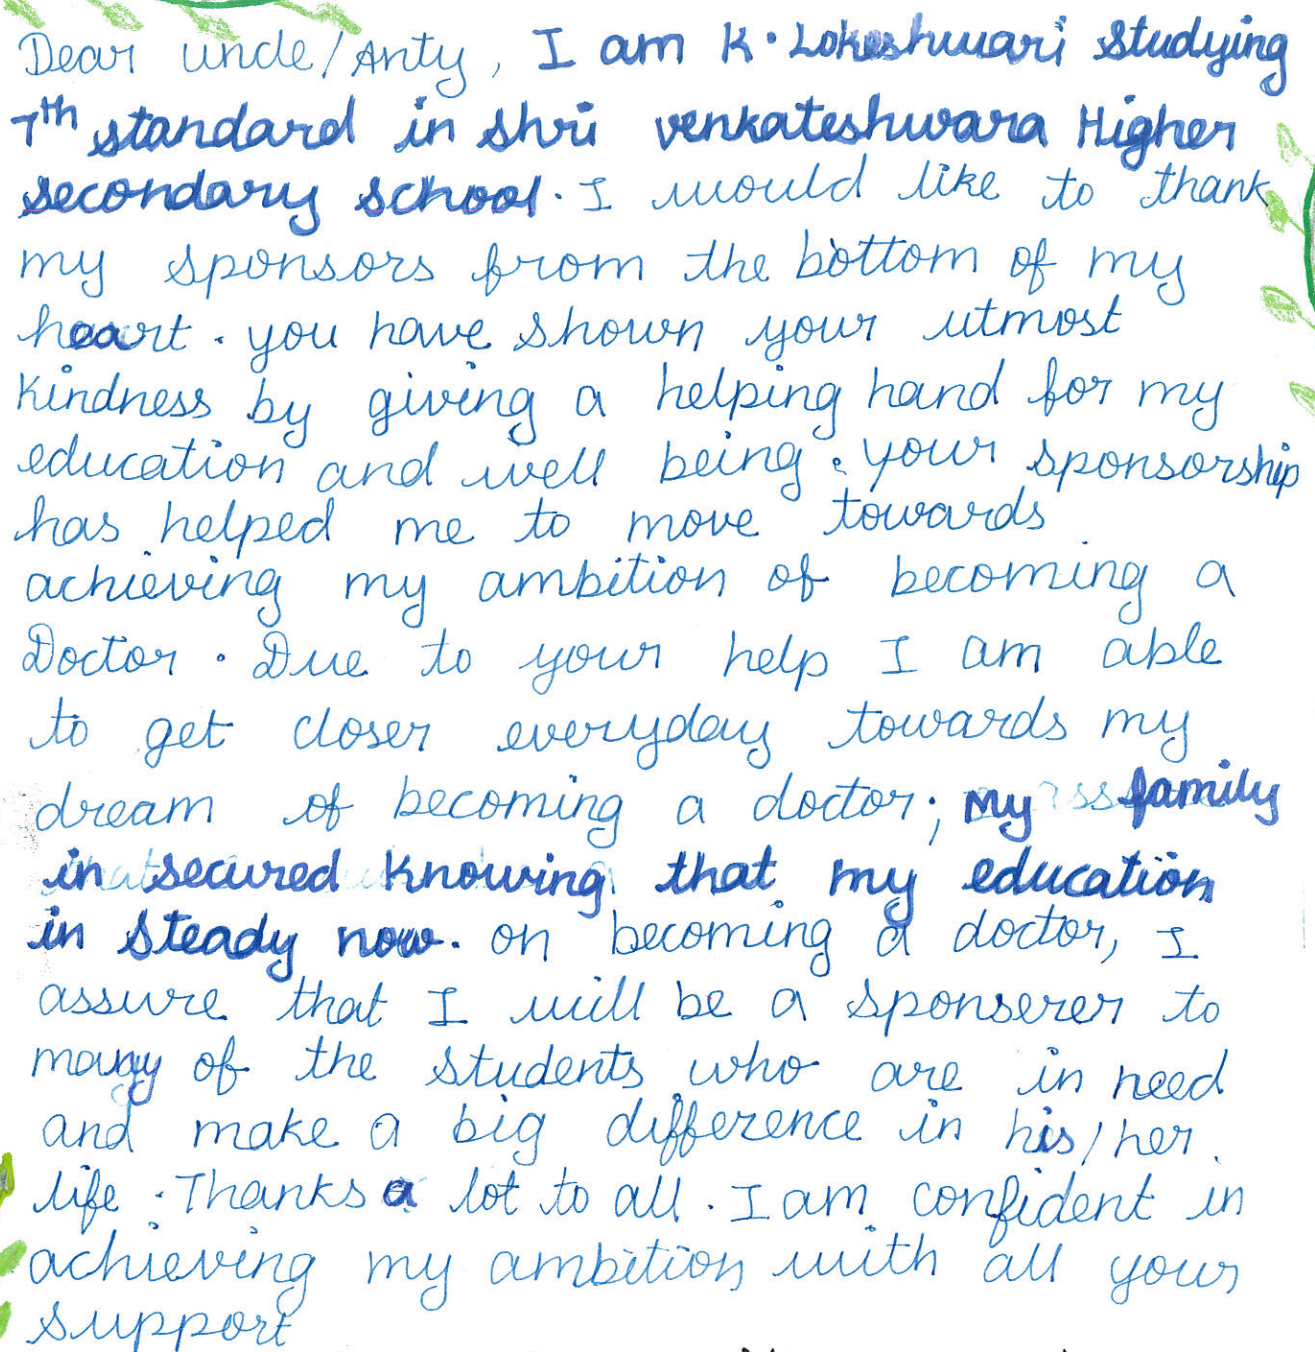 Dear uncle/Anty, I am K. Lokeshwari studying
7th standard in Shri venkateshwara Higher
secondary school. I would like to thank
my sponsors from the bottom of my
heart. you have shown your utmost
kindness by giving a helping hand for my
education and well being. your sponsorship
has helped me to move towards
achieving my ambition of becoming a
Doctor. Due to your help I am able
to get closer everyday towards my
dream of becoming a doctor; My family
in secured knowing that my education
in steady now. on becoming a doctor, I
assure that I will be a sponserer to
many of the students who are in need
and make a big difference in his/her
life. Thanks a lot to all. I am confident in
achieving my ambition with all your
support